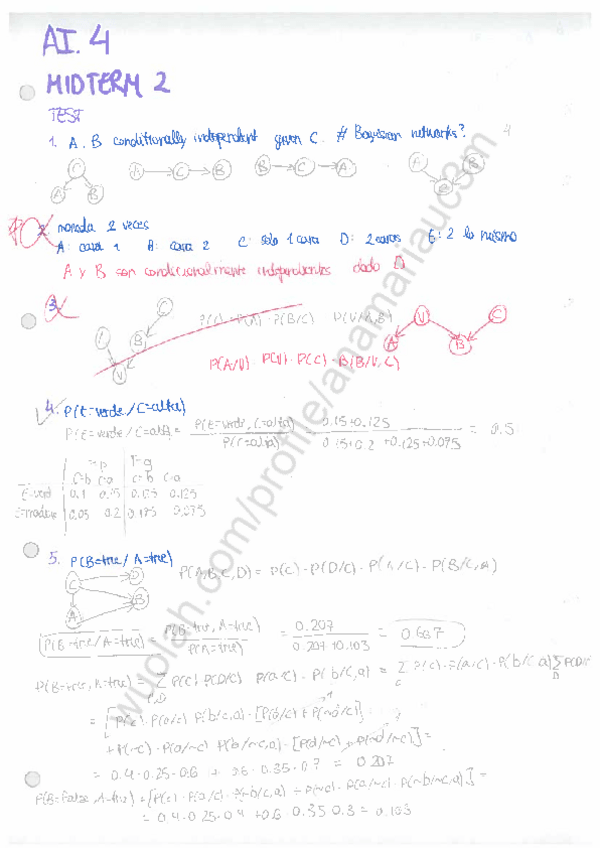 AI. 4
MIDTERM 2
TEST
1. A, B conditionally independent given C. # Bayesian networks?
C A B
A C B
B C A
A B
2. moneda 2 veces
A: cara 1 B: cara 2 C: solo 1 cara D: 2 caras E: 2 lo mismo
A y B son condicionalmente independientes dado D
3.
B V
A V B C
P(A/V) P(V) · P(C) · B(B/V, C)
4. P(E=verde/C=alta)
P(E=verde/C=alta) = P(E=verde, C=alta) / P(C=alta) = 0.15+0.125 / 0.15+0.2+0.125+0.075 = 0.5
T=p T=g
C=b C=a C=b C=a
E=verd 0.1 0.15 0.125 0.125
E=madura 0.05 0.2 0.175 0.075
5. P(B=true/A=true)
P(A,B,C,D) = P(C) · P(D/C) · P(A/C) · P(B/C,A)
C D B A
P(B=true/A=true) = P(B=true, A=true) / P(A=true) = 0.207 / 0.207+0.103 = 0.667
P(B=true, A=true) = Σ P(C) P(D/C) P(a/C) · P(b/C,a) = Σ P(C) · P(a/C) · P(b/C a) Σ P(D/C)
= [P(c) · P(a/c) P(b/c,a) · [P(d/c) + P(¬d/c)]
+ P(¬c) · P(a/¬c) P(b/¬c,a) · [P(d/¬c) + P(¬d/¬c)] =
= 0.4 · 0.25 · 0.6 + 0.6 · 0.35 · 0.7 = 0.207
P(B=false, A=true) = [P(c) · P(a/c) · P(¬b/c,a) + P(¬c) · P(a/¬c) · P(¬b/¬c,a)] =
= 0.4 · 0.25 · 0.4 + 0.6 0.35 0.3 = 0.103
wuolah.com/profile/anamariauc3m